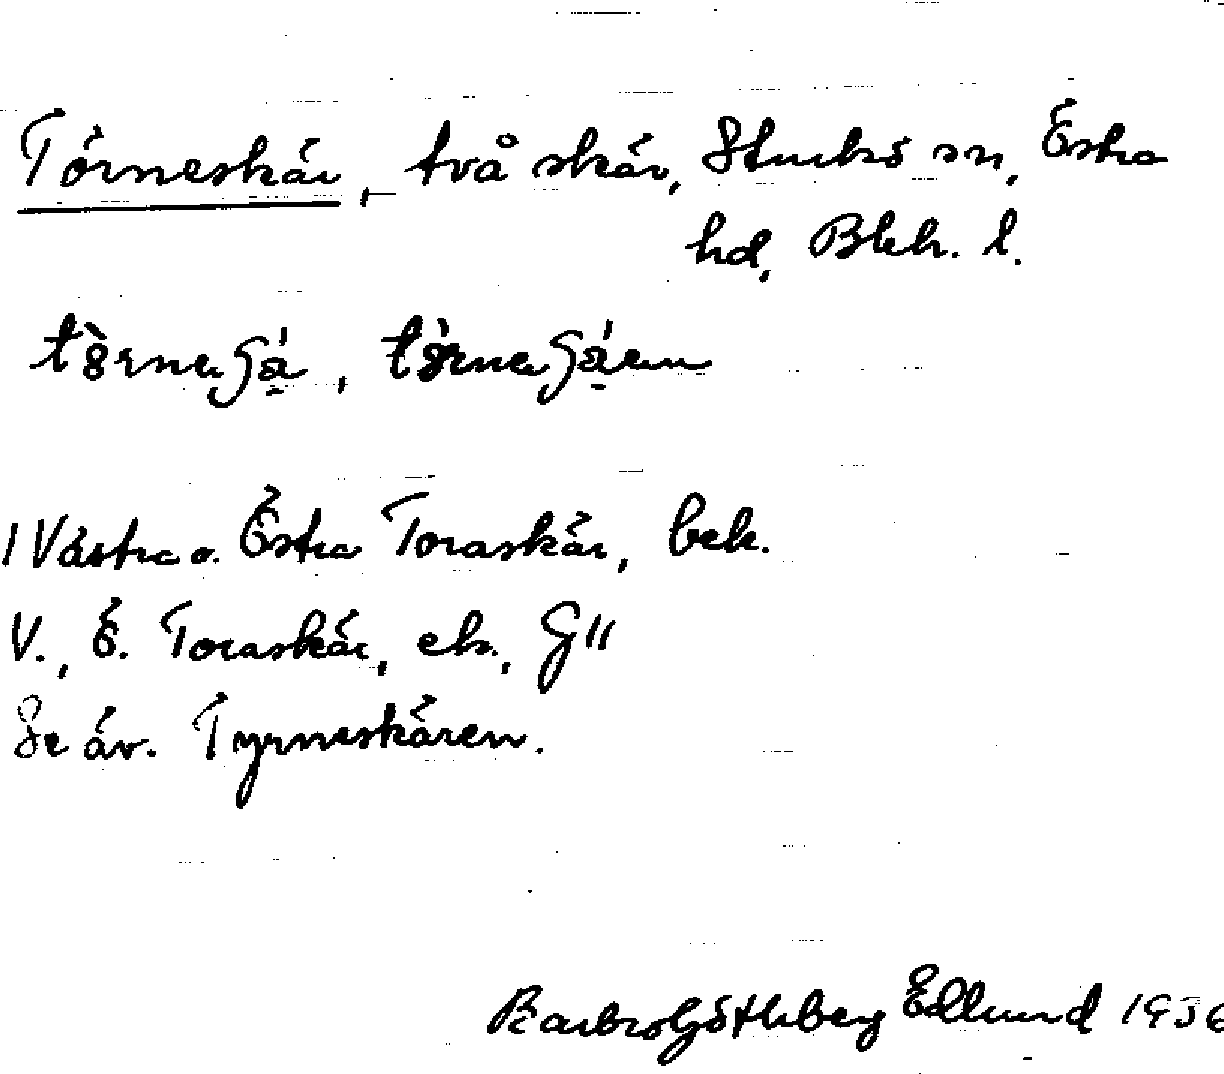 Törneskär, två skär, Sturkö sn, Östra
hd, Blek. l.
Västra o. Östra Toraskär, bek.
V., Ö. Toraskär, ek., G11
Se äv. Tyrneskären.
Barbro Götheberg Edlund 1936